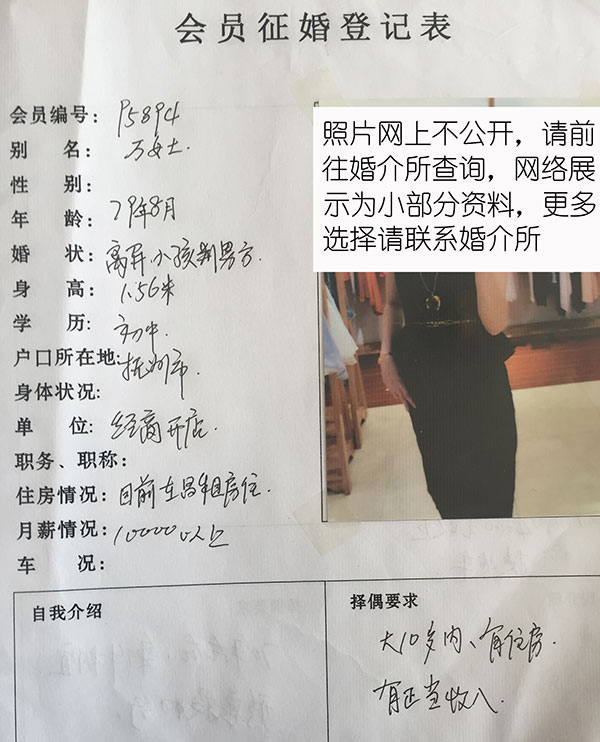 会员征婚登记表
会员编号: P5894
别 名: 万女士
性 别:
年 龄: 79年8月
婚 状: 离异小孩判男方
身 高: 1.56米
学 历: 初中
户口所在地: 抚州市
身体状况:
单 位: 经商开店
职务、职称:
住房情况: 目前在昌租房住
月薪情况: 10000以上
车 况:
照片网上不公开，请前
往婚介所查询，网络展
示为小部分资料，更多
选择请联系婚介所
自我介绍
择偶要求
大10岁内、有住房
有正当收入